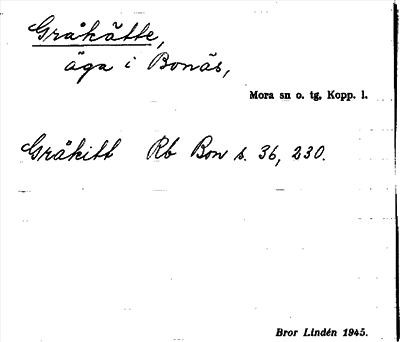 Gråhätte,
äga i Bonäs,
Mora sn o. tg, Kopp. l.
Gråkitt Rb Bon s. 36, 230.
Bror Lindén 1945.